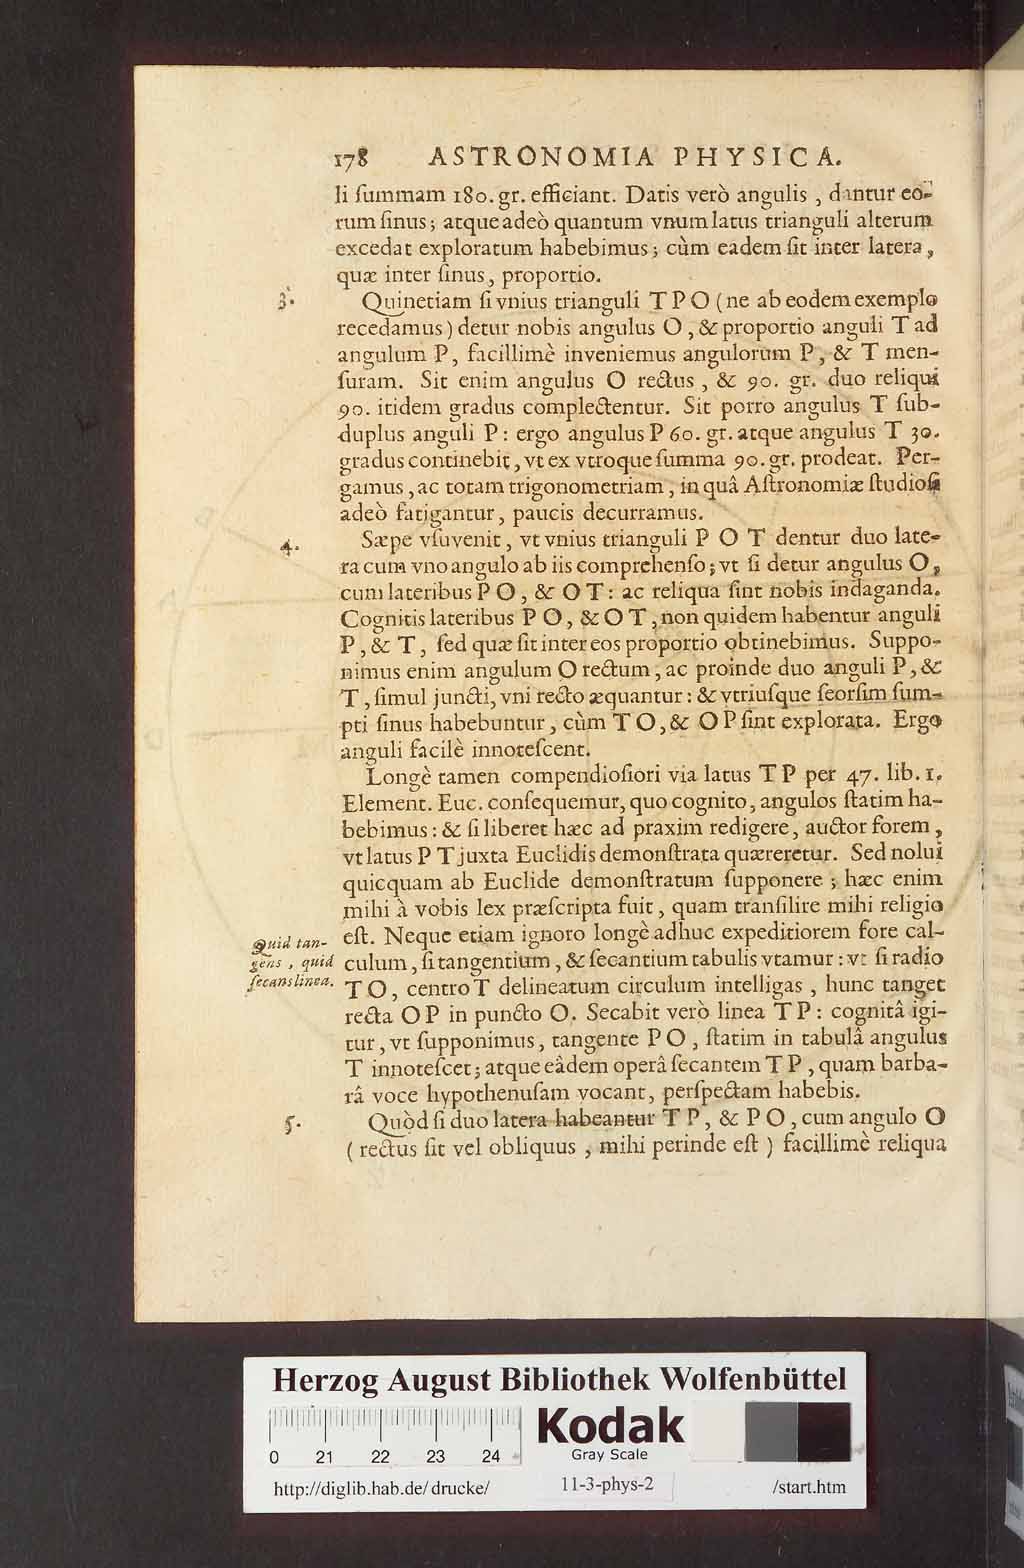 178 ASTRONOMIA PHYSICA.
li ſummam 180. gr. efficiant. Datis verò angulis, dantur eo-
rum ſinus; atque adeò quantum vnum latus trianguli alterum
excedat exploratum habebimus; cùm eadem ſit inter latera,
quæ inter ſinus, proportio.
3.
Quinetiam ſi vnius trianguli T P O (ne ab eodem exemplo
recedamus) detur nobis angulus O, & proportio anguli T ad
angulum P, facillimè inveniemus angulorum P, & T men-
ſuram. Sit enim angulus O rectus, & 90. gr. duo reliqui
90. itidem gradus complectentur. Sit porro angulus T ſub-
duplus anguli P: ergo angulus P 60. gr. atque angulus T 30.
gradus continebit, vt ex vtroque ſumma 90. gr. prodeat. Per-
gamus, ac totam trigonometriam, in quâ Aſtronomiæ ſtudioſi
adeò fatigantur, paucis decurramus.
4.
Sæpe vſuvenit, vt vnius trianguli P O T dentur duo late-
ra cum vno angulo ab iis comprehenſo; vt ſi detur angulus O,
cum lateribus P O, & O T: ac reliqua ſint nobis indaganda.
Cognitis lateribus P O, & O T, non quidem habentur anguli
P, & T, ſed quæ ſit inter eos proportio obtinebimus. Suppo-
nimus enim angulum O rectum, ac proinde duo anguli P, &
T, ſimul juncti, vni recto æquantur: & vtriuſque ſeorſim ſum-
pti ſinus habebuntur, cùm T O, & O P ſint explorata. Ergo
anguli facilè innoteſcent.
Longè tamen compendioſiori via latus T P per 47. lib. 1.
Element. Euc. conſequemur, quo cognito, angulos ſtatim ha-
bebimus: & ſi liberet hæc ad praxim redigere, auctor forem,
vt latus P T juxta Euclidis demonſtrata quæreretur. Sed nolui
quicquam ab Euclide demonſtratum ſupponere; hæc enim
mihi à vobis lex præſcripta fuit, quam tranſilire mihi religio
eſt. Neque etiam ignoro longè adhuc expeditiorem fore cal-
culum, ſi tangentium, & ſecantium tabulis vtamur: vt ſi radio
T O, centro T delineatum circulum intelligas, hunc tanget
recta O P in puncto O. Secabit verò linea T P: cognitâ igi-
tur, vt ſupponimus, tangente P O, ſtatim in tabulâ angulus
T innoteſcet; atque eâdem operâ ſecantem T P, quam barba-
râ voce hypothenuſam vocant, perſpectam habebis.
Quid tan-
gens, quid
ſecans linea.
5.
Quòd ſi duo latera habeantur T P, & P O, cum angulo O
(rectus ſit vel obliquus, mihi perinde eſt) facillimè reliqua
Herzog August Bibliothek Wolfenbüttel
0 21 22 23 24
Kodak
Gray Scale
http://diglib.hab.de/drucke/ 11-3-phys-2 /start.htm